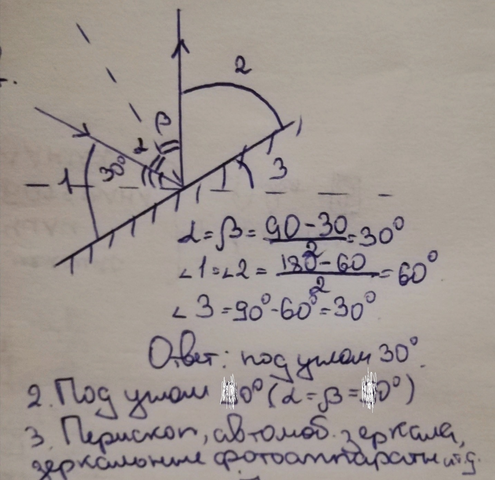 2
β
α
30°
1
3
α=β=(90-30)/2=30°
∠1=∠2=(180-60)/2=60°
∠3=90°-60°=30°
Ответ: под углом 30°.
2. Под углом 0° (α=β= 0°)
3. Перископ, автомоб. зеркала,
зеркальные фотоаппараты и т.д.